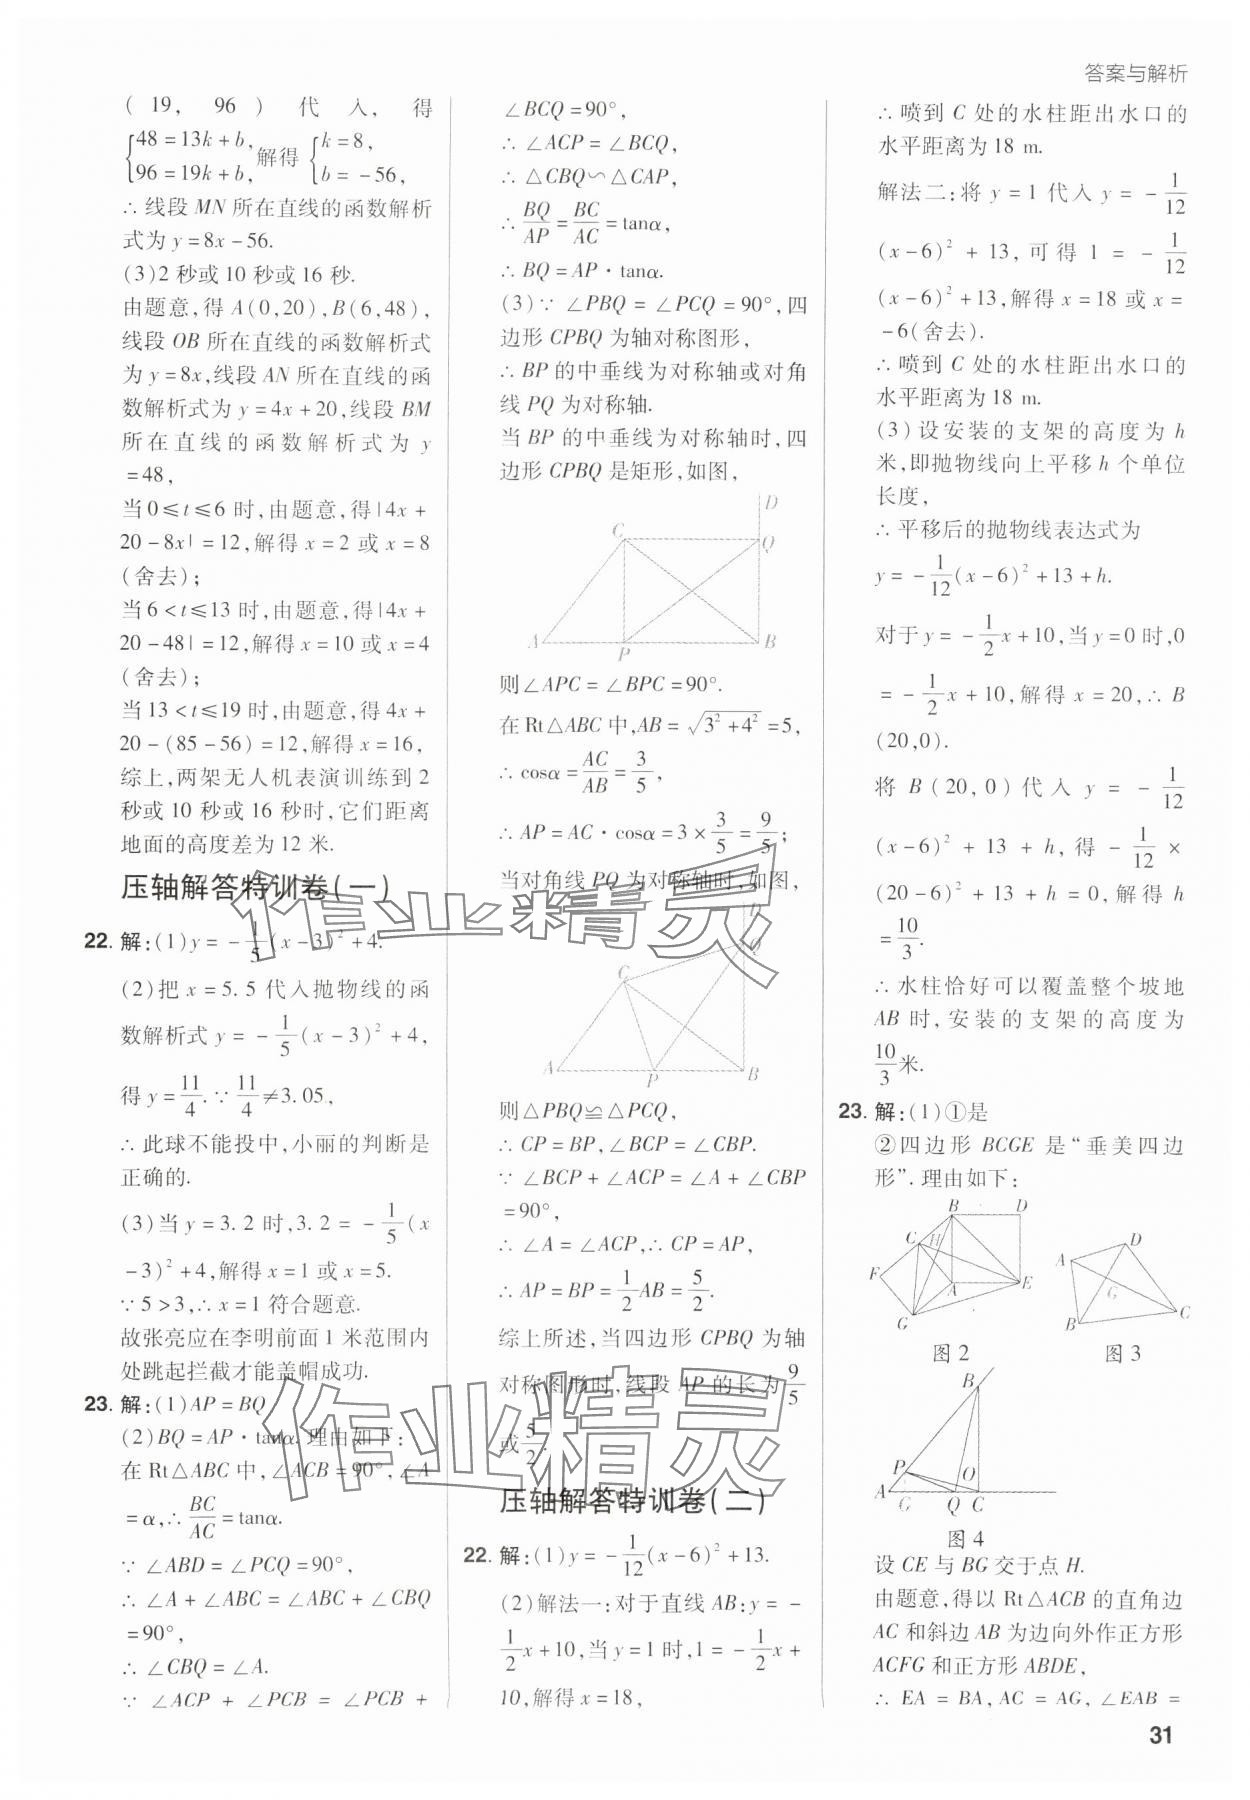 答案与解析
(19, 96) 代入, 得
{48=13k+b, 96=19k+b, 解得 {k=8, b=-56,
∴线段 MN 所在直线的函数解析
式为 y=8x-56.
(3)2 秒或 10 秒或 16 秒.
由题意,得 A(0,20),B(6,48),
线段 OB 所在直线的函数解析式
为 y=8x,线段 AN 所在直线的函
数解析式为 y=4x+20,线段 BM
所在直线的函数解析式为 y
=48,
当 0≤t≤6 时,由题意,得|4x+
20-8x|=12,解得 x=2 或 x=8
(舍去);
当 6<t≤13 时,由题意,得|4x+
20-48|=12,解得 x=10 或 x=4
(舍去);
当 13<t≤19 时,由题意,得 4x+
20-(85-56)=12,解得 x=16,
综上,两架无人机表演训练到 2
秒或 10 秒或 16 秒时,它们距离
地面的高度差为 12 米.
压轴解答特训卷(一)
22. 解:(1)y=-1/5(x-3)²+4.
(2)把 x=5.5 代入抛物线的函
数解析式 y=-1/5(x-3)²+4,
得 y=11/4.∵11/4≠3.05,
∴此球不能投中,小丽的判断是
正确的.
(3)当 y=3.2 时,3.2=-1/5(x
-3)²+4,解得 x=1 或 x=5.
∵5>3,∴x=1 符合题意.
故张亮应在李明前面 1 米范围内
处跳起拦截才能盖帽成功.
23. 解:(1)AP=BQ
(2)BQ=AP·tanα.理由如下:
在 Rt△ABC 中,∠ACB=90°,∠A
=α,∴BC/AC=tanα.
∵∠ABD=∠PCQ=90°,
∴∠A+∠ABC=∠ABC+∠CBQ
=90°,
∴∠CBQ=∠A.
∵∠ACP+∠PCB=∠PCB+
∠BCQ=90°,
∴∠ACP=∠BCQ,
∴△CBQ∽△CAP,
∴BQ/AP=BC/AC=tanα,
∴BQ=AP·tanα.
(3)∵∠PBQ=∠PCQ=90°,四
边形 CPBQ 为轴对称图形,
∴BP 的中垂线为对称轴或对角
线 PQ 为对称轴.
当 BP 的中垂线为对称轴时,四
边形 CPBQ 是矩形,如图,
D
C
Q
A
P
B
则∠APC=∠BPC=90°.
在 Rt△ABC 中,AB=√(3²+4²)=5,
∴cosα=AC/AB=3/5,
∴AP=AC·cosα=3×3/5=9/5;
当对角线 PQ 为对称轴时,如图,
D
Q
C
A
P
B
则△PBQ≌△PCQ,
∴CP=BP,∠BCP=∠CBP.
∵∠BCP+∠ACP=∠A+∠CBP
=90°,
∴∠A=∠ACP,∴CP=AP,
∴AP=BP=1/2AB=5/2.
综上所述,当四边形 CPBQ 为轴
对称图形时,线段 AP 的长为9/5
或5/2.
压轴解答特训卷(二)
22. 解:(1)y=-1/12(x-6)²+13.
(2)解法一:对于直线 AB:y=-
1/2x+10,当 y=1 时,1=-1/2x+
10,解得 x=18,
∴喷到 C 处的水柱距出水口的
水平距离为 18 m.
解法二:将 y=1 代入 y=-1/12
(x-6)²+13,可得 1=-1/12
(x-6)²+13,解得 x=18 或 x=
-6(舍去).
∴喷到 C 处的水柱距出水口的
水平距离为 18 m.
(3)设安装的支架的高度为 h
米,即抛物线向上平移 h 个单位
长度,
∴平移后的抛物线表达式为
y=-1/12(x-6)²+13+h.
对于 y=-1/2x+10,当 y=0 时,0
=-1/2x+10,解得 x=20,∴B
(20,0).
将 B(20,0)代入 y=-1/12
(x-6)²+13+h,得-1/12×
(20-6)²+13+h=0,解得 h
=10/3.
∴水柱恰好可以覆盖整个坡地
AB 时,安装的支架的高度为
10/3米.
23. 解:(1)①是
②四边形 BCGE 是“垂美四边
形”.理由如下:
B
D
C
H
F
A
E
G
图 2
D
A
G
B
C
图 3
B
P
O
A
G
Q
C
图 4
设 CE 与 BG 交于点 H.
由题意,得以 Rt△ACB 的直角边
AC 和斜边 AB 为边向外作正方形
ACFG 和正方形 ABDE,
∴EA=BA,AC=AG,∠EAB=
31
作业精灵
作业精灵